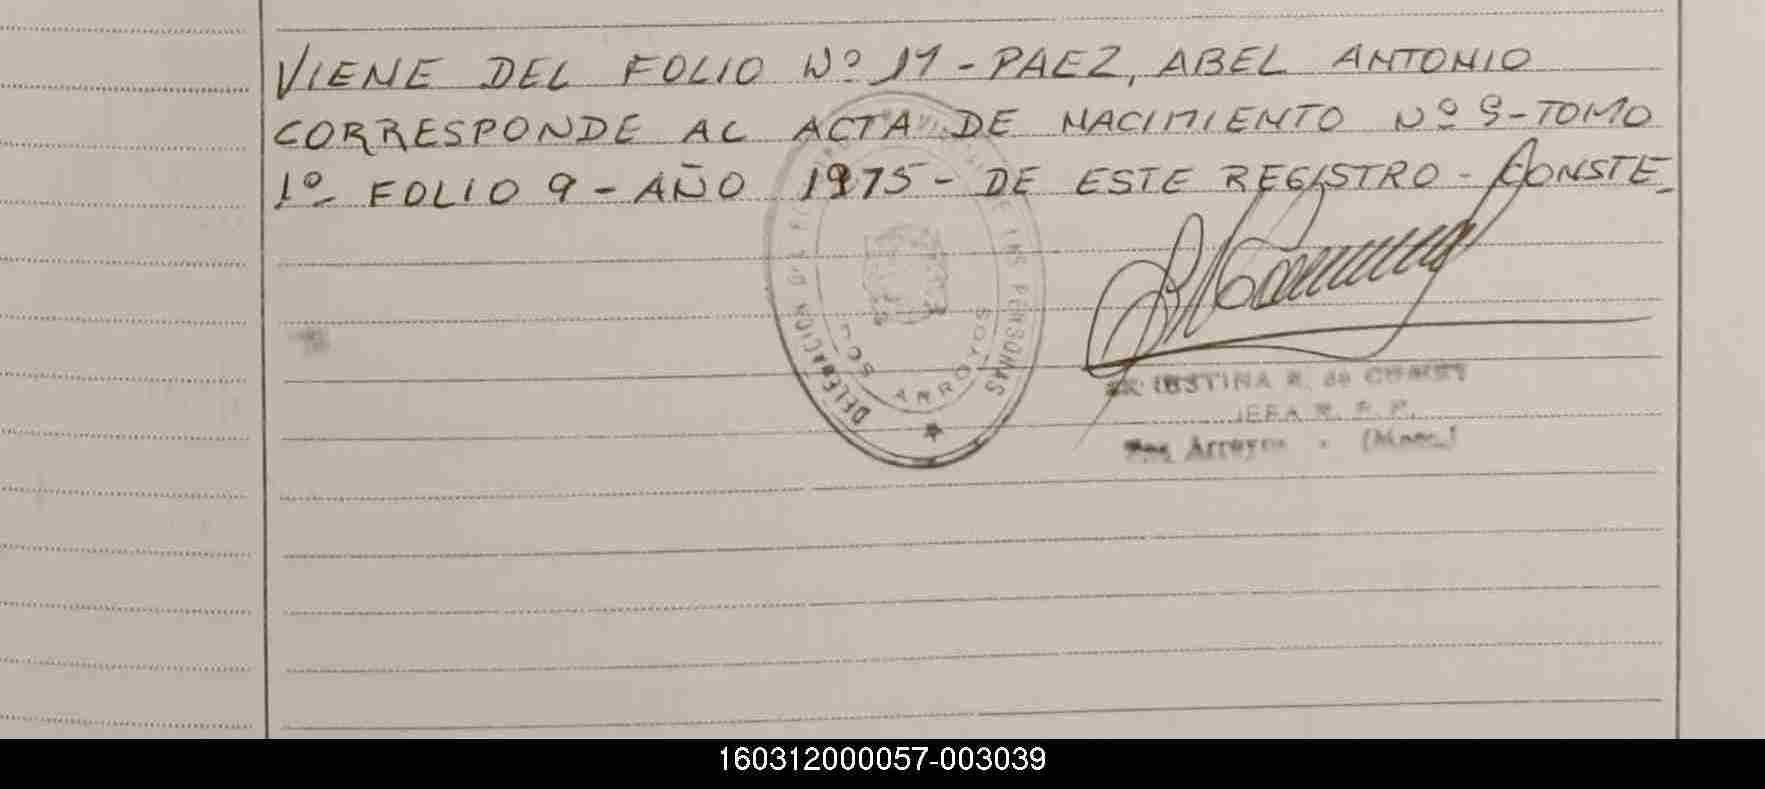 VIENE DEL FOLIO Nº 11 - PAEZ, ABEL ANTONIO
CORRESPONDE AL ACTA DE NACIMIENTO Nº 9 - TOMO
1º FOLIO 9 - AÑO 1975 - DE ESTE REGISTRO - CONSTE_
DELEGACION DE LAS PERSONAS
ARROYOS
JEFA R. P. P.
Arroyos
160312000057-003039